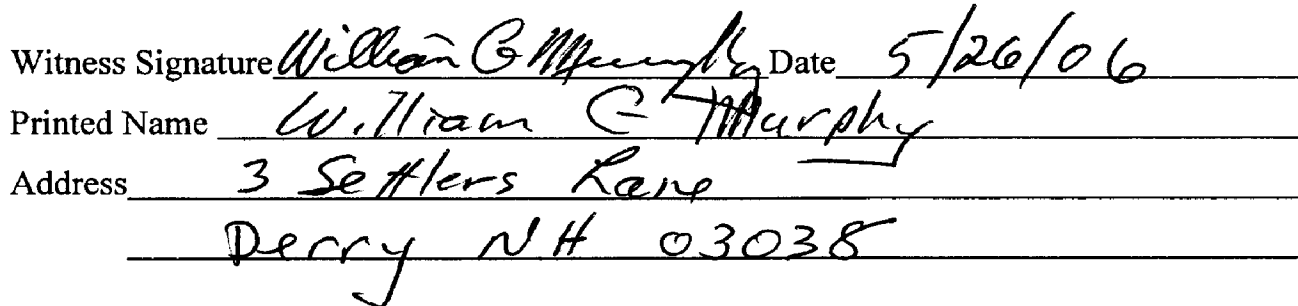 Witness Signature William G Murphy Date 5/26/06
Printed Name William G Murphy
Address 3 Settlers Lane
Derry NH 03038